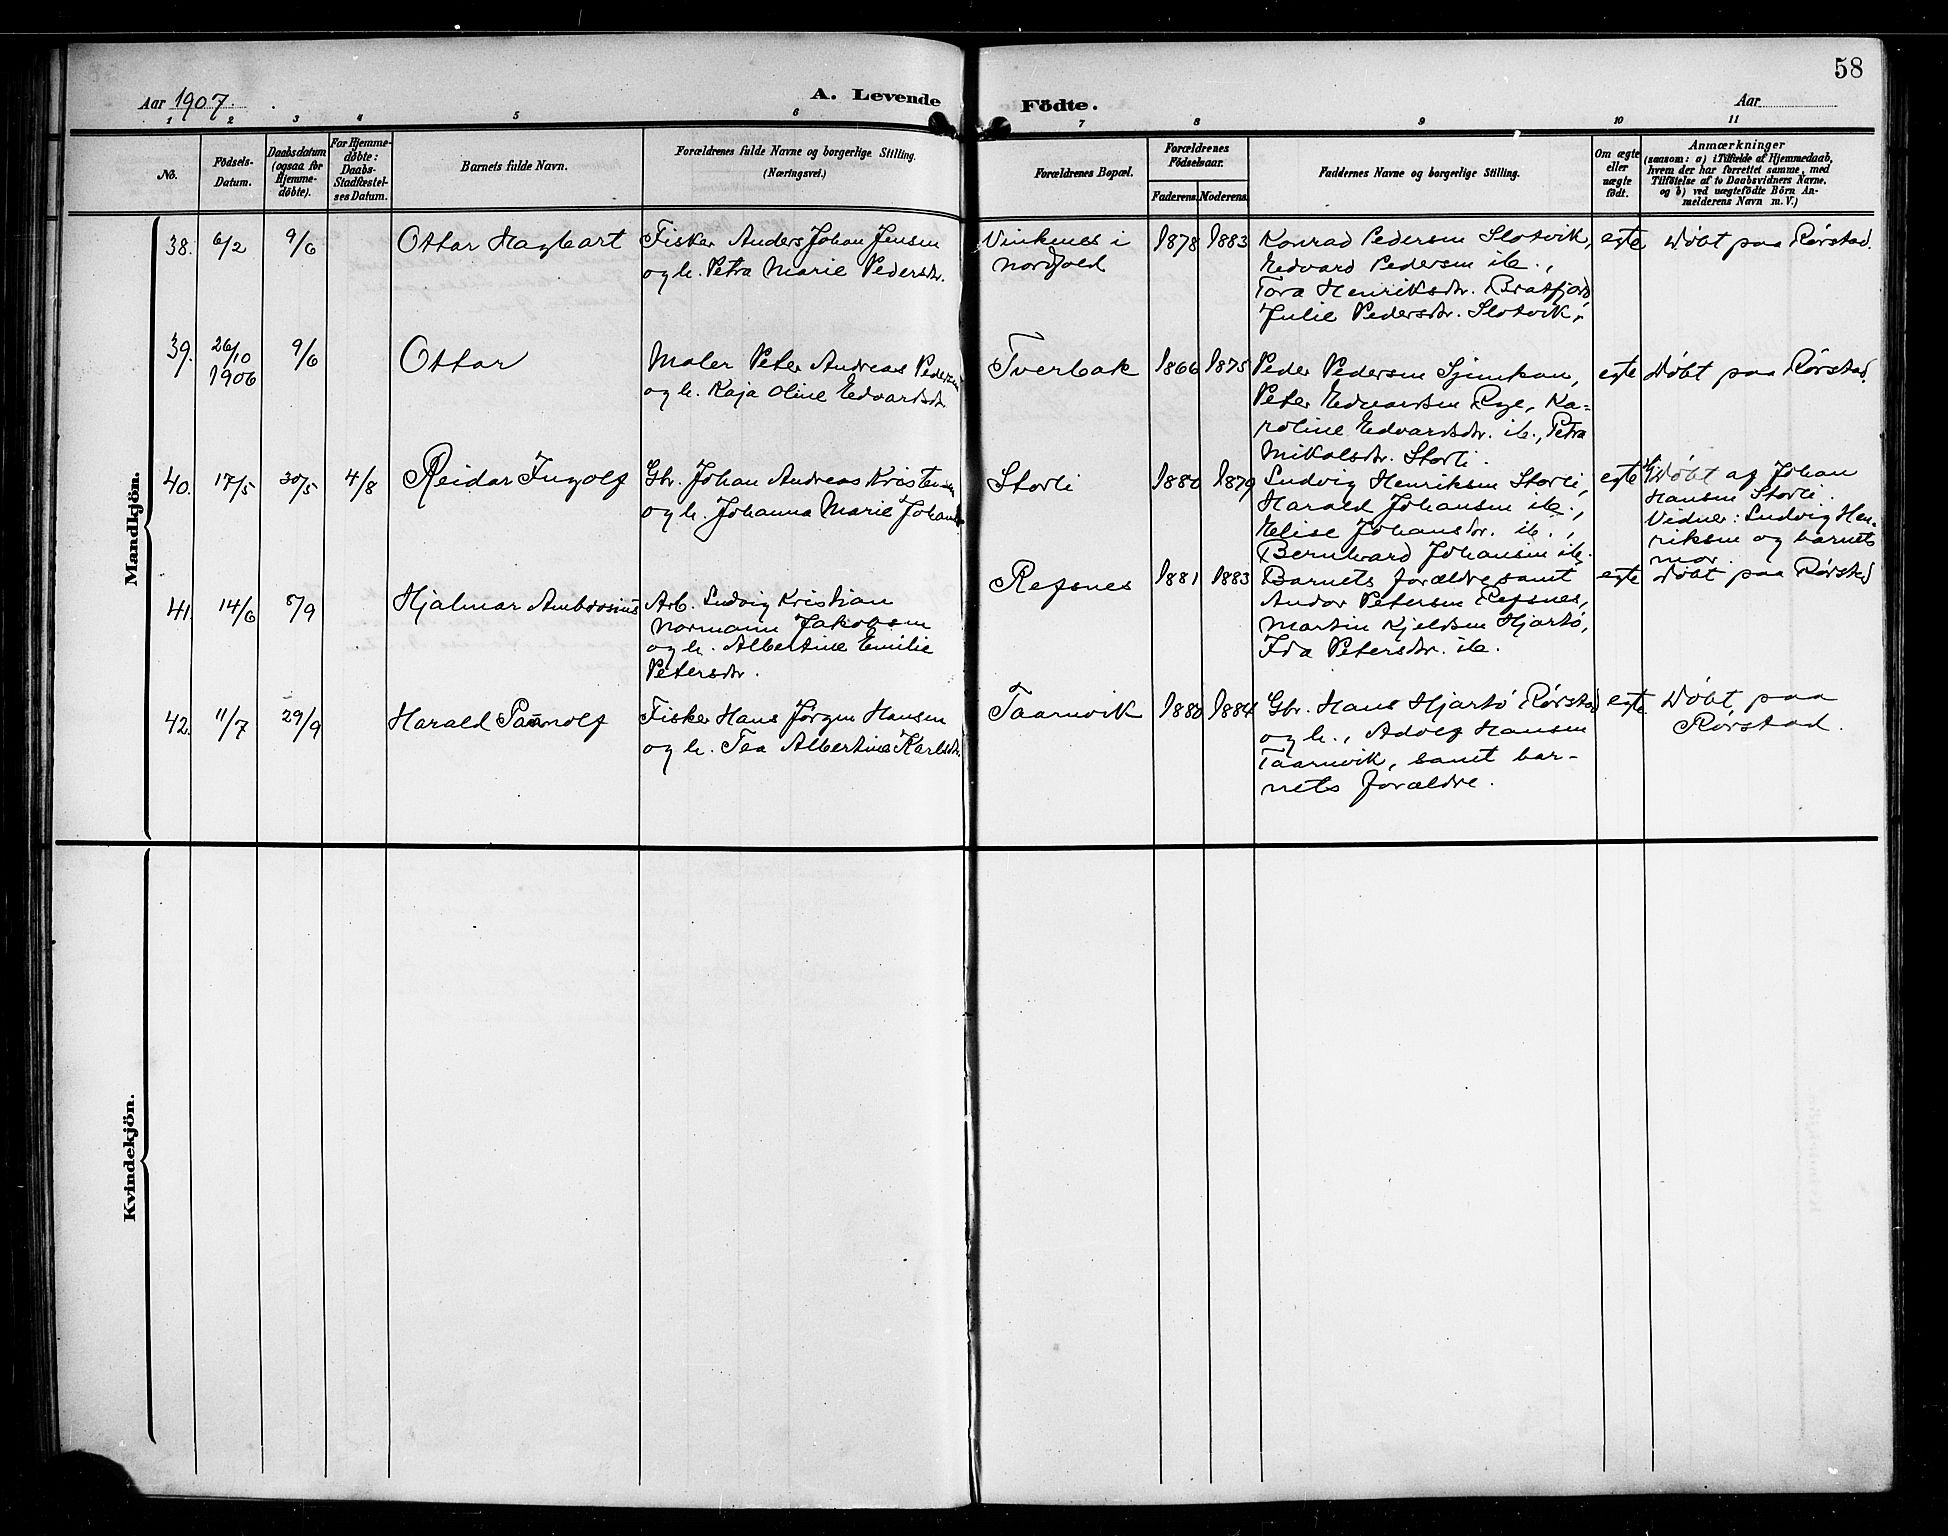 58
Aar 1907.
A. Levende Födte.
Aar
1 2 3 4 5 6 7 8 9 10 11
No.
Födsels-Datum.
Daabsdatum (ogsaa for Hjemme-döbte).
For Hjemme-döbte: Daabs-Stadfæstel-ses Datum.
Barnets fulde Navn.
Forældrenes fulde Navne og borgerlige Stilling.
(Næringsvei.)
Forældrenes Bopæl.
Forældrenes Födselsaar.
Faderens Moderens
Faddernes Navne og borgerlige Stilling.
Om ægte eller uægte födt.
Anmærkninger
(saasom: a) i Tilfælde af Hjemmedaab,
hvem der har forrettet samme, med
Tilföielse af to Daabsvidners Navne,
og b) ved uægtefödte Börn An-
melderens Navn m. V.)
Mandkjön.
38. 6/2 9/6 Ottar Hagbart
Fisker Anders Johan Jensen
og h. Petra Marie Pedersdr.
Vinkenes i
Nordfold
1878 1883
Konrad Pedersen Slotvik,
Edvard Pedersen ib.,
Tora Henriksdr. Bratfjord,
Julie Pedersdr. Slotvik.
egte
Døbt paa Rørstad.
39. 26/10 1906 9/6 Ottar
Maler Peter Andreas Pedersen
og h. Kaja Oline Edvardsdr.
Tverbak
1866 1875
Peder Pedersen
Peter Edvardsen Ka-
roline Edvardsdr. ib., Petra
Mikalsdr. Storli.
egte
Døbt paa Rørstad.
40. 17/5 30/5 4/8 Reidar Ingolf
Gbr. Johan Andreas Kristensen
og h. Johanna Marie Johansdr.
Storli
1880 1879
Ludvig Henriksen Storli,
Harald Johansen ib.,
Elise Johansdr. ib.,
Bernhard Johansen ib.
egte
Døbt af Johan
Hansen Storli.
Vidner: Ludvig Hen-
riksen og barnets
mor.
41. 14/6 8/9 Hjalmar Ambrosius
Arb. Ludvig Kristian
Normann Jakobsen
og h. Albertine Emilie
Petersdr.
Refsnes
1881 1883
Barnets forældre samt
Andor Petersen Refsnes,
Martin Kjeldsen Hjartø,
Ida Petersdr. ib.
egte
Døbt paa Rørstad
42. 11/7 29/9 Harald
Fisker Hans Jørgen Hansen
og h. Tea Albertine Karlsdr.
Taarnvik
1880 1884
Gbr. Hans Hjartø Rørstad
og h., Adolf Hansen
Taarnvik, samt bar-
nets forældre.
egte
Døbt paa
Rørstad.
Kvindekjön.